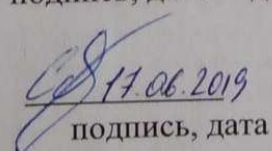 17.06.2019
подпись, дата